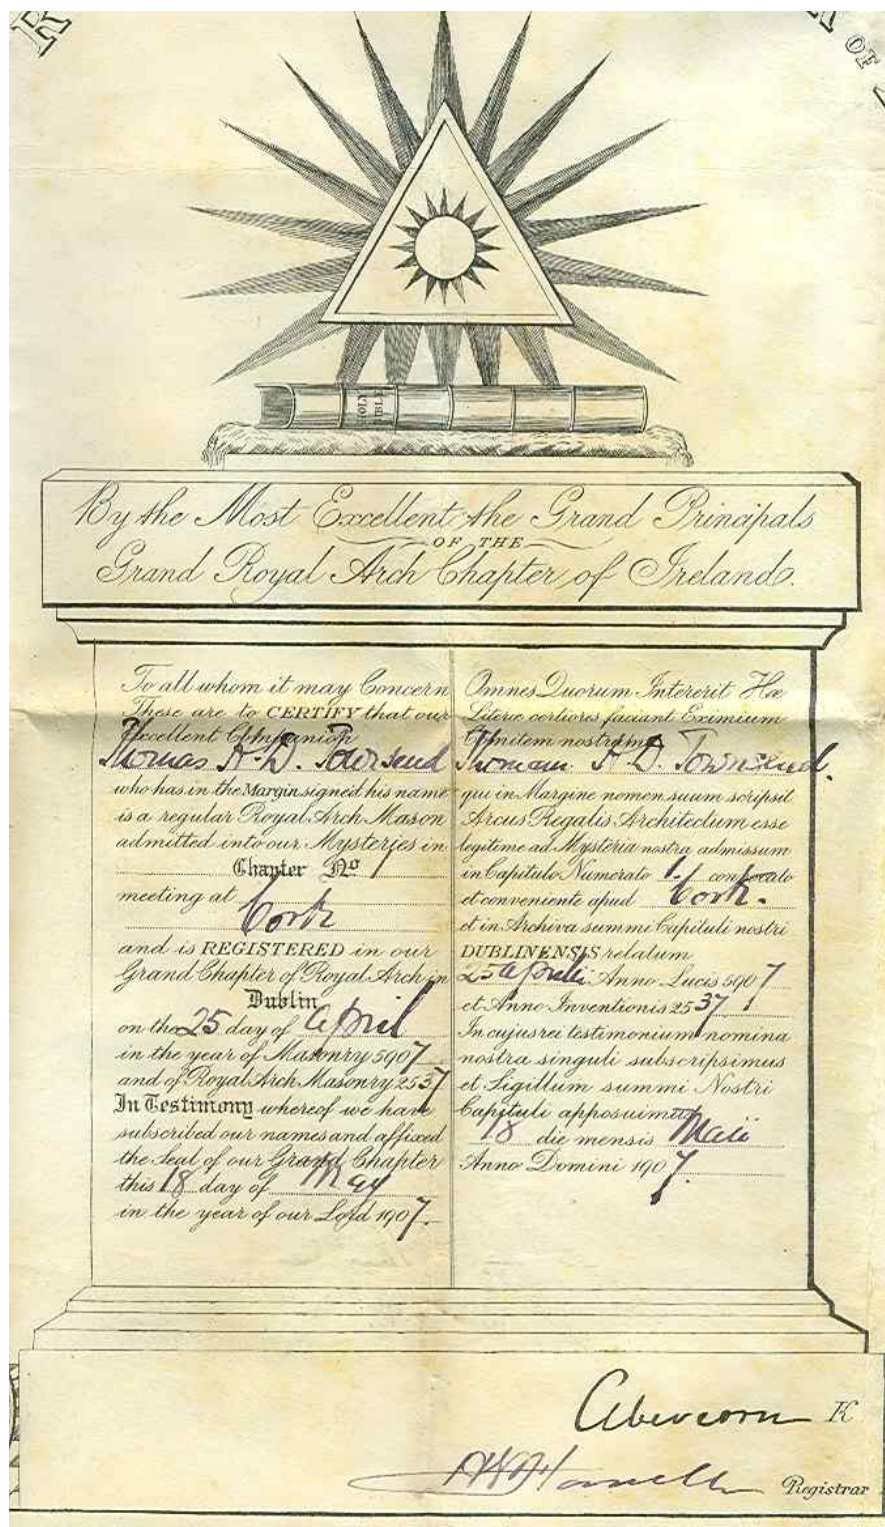 R
R OF
HOLY BIBLE
By the Most Excellent the Grand Principals
OF THE
Grand Royal Arch Chapter of Ireland.
To all whom it may Concern
These are to CERTIFY that our
Excellent Companion
Thomas D. Townsend
who has in the Margin signed his name
is a regular Royal Arch Mason
admitted into our Mysteries in
Chapter No 1
meeting at
Cork
and is REGISTERED in our
Grand Chapter of Royal Arch in
Dublin
on the 25 day of April
in the year of Masonry 5907
and of Royal Arch Masonry 2537
In Testimony whereof we have
subscribed our names and affixed
the Seal of our Grand Chapter
this 18 day of May
in the year of our Lord 1907.
Omnes Quorum Intererit Hæ
Literæ certiores faciant Eximium
nostrum
Thomam D. Townsend.
qui in Margine nomen suum scripsit
Arcus Regalis Architectum esse
legitime ad Mysteria nostra admissum
in Capitulo Numerato 1. convocato
et conveniente apud Cork.
et in Archiva summi Capituli nostri
DUBLINENSIS relatum
25 Aprilii Anno Lucis 5907
et Anno Inventionis 2537
In cujus rei testimonium nomina
nostra singuli subscripsimus
et Sigillum summi Nostri
Capituli apposuimus
18 die mensis Maii
Anno Domini 1907.
Abercorn K
Registrar